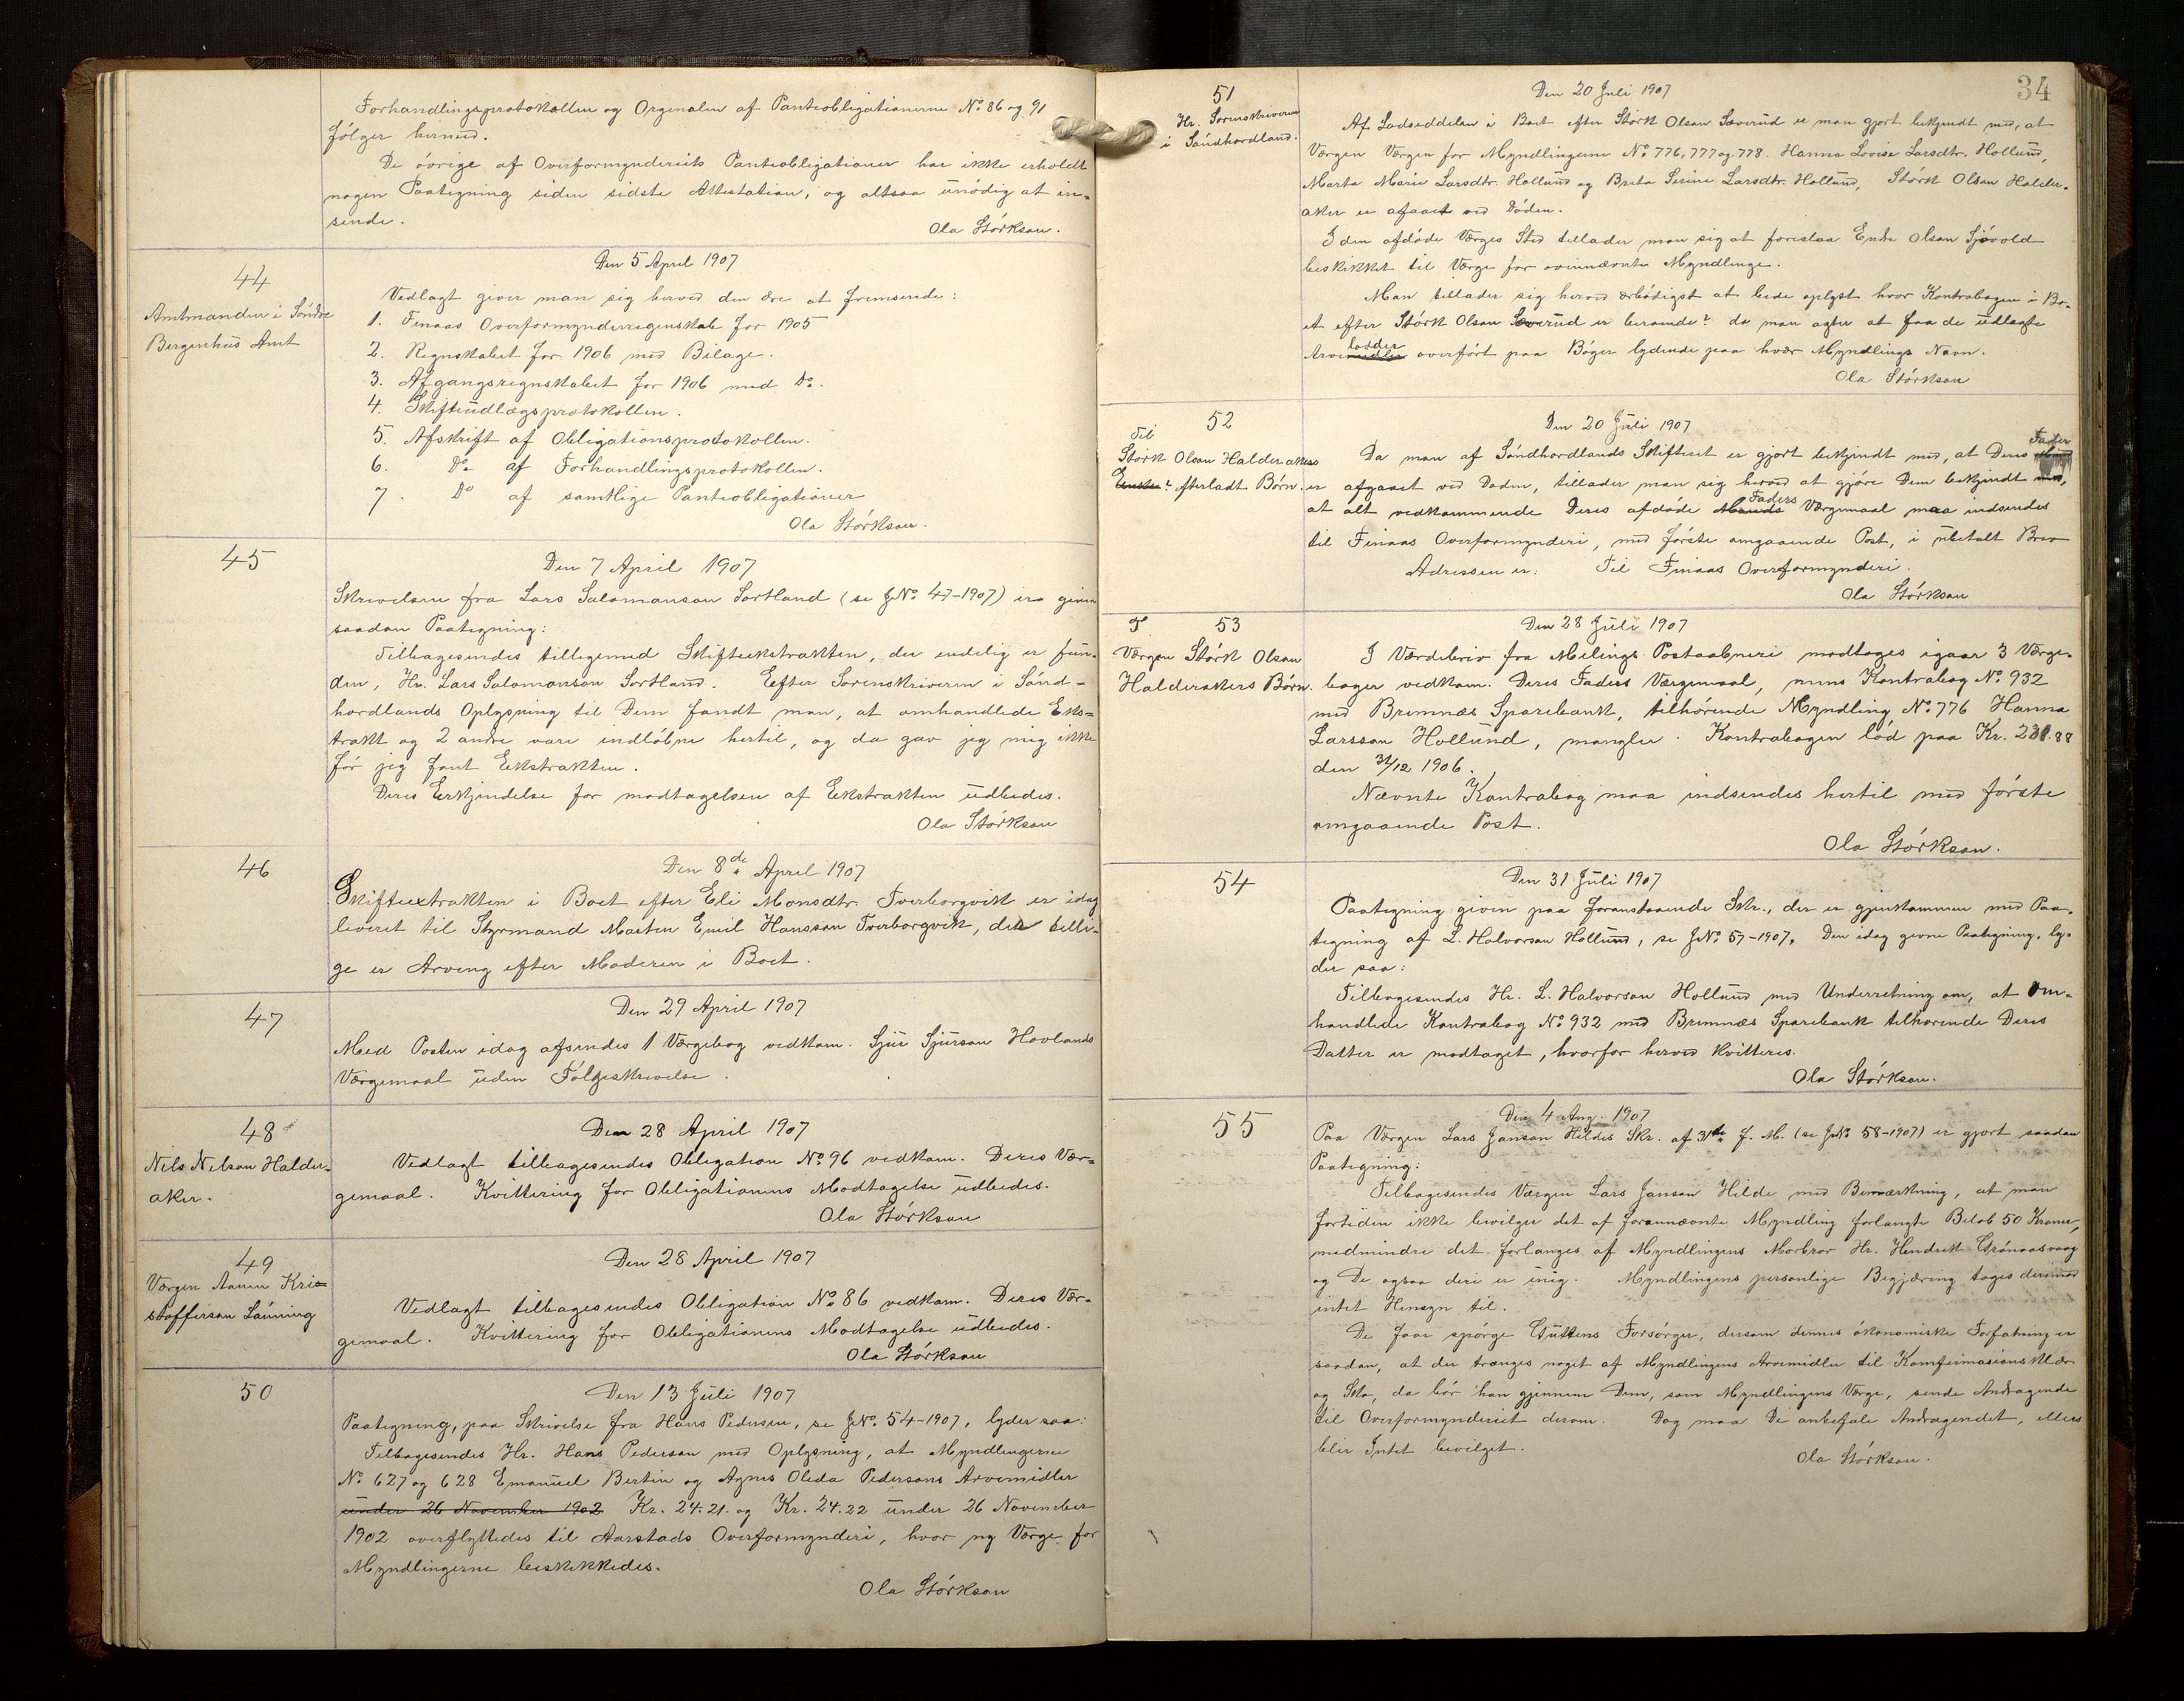 Forhandlingsprotokollen og Orginalen af Pantobligationerne No. 86 og 91
følger hermed.
De øvrige af Overformynderiets Panteobligationer har ikke erholdt
nogen Paategning siden sidste Attestation, og altsaa unødig at in-
sende.
Ola Størkson.
44
Amtmanden i Søndre
Bergenhus Amt
Den 5 April 1907
Vedlagt giver man sig herved den ære at fremsende:
1. Finaas Overformynderregnskab for 1905
2. Regnskabet for 1906 med Bilage.
3. Afgangsregnskabet for 1906 med Do.
4. Skifteudlægsprotokollen.
5. Afskrift af Obligationsprotokollen.
6. Do. af Forhandlingsprotokollen.
7. Do af samtlige Panteobligationer
Ola Størkson.
45
Den 7 April 1907
Skrivelsen fra Lars Salomonson Sortland (se JNo. 47-1907) er given
saadan Paategning:
Tilbagesendes tilligemed Skifteekstrakten, der endelig er fun-
den, Hr. Lars Salomonson Sortland. Eefter Sorenskriveren i Sønd-
hordlands Oplysning til Dem fandt man, at omhandlede Eks-
trakt og 2 andre vare indløbne hertil, og da gav jeg mig ikke
før jeg fant Eekstrakten.
Deres Eerkjendelse for modtagelsen af Eekstrakten udbedes.
Ola Størkson
46
Den 8de April 1907
Skifteextrakten i Boet efter Eli Monsdtr. Tverborgvik er idag
leveret til Styrmand Marten Emil Hansson Tverborgvik, der tilli-
ge er Arving efter Moderen i Boet.
47
Den 29 April 1907
Med Posten idag afsendes 1 Værgebog vedkom. Sjur Sjurson Hovlands
Værgemaal uden Følgeskrivelse.
48
Nils Nilson Halder-
aker.
Den 28 April 1907
Vedlagt tilbagesendes Obligation No. 96 vedkom. Deres Vær-
gemaal. Kvittering for Obligationens Modtagelse udbedes.
Ola Størkson
49
Værgen Aamun Kri-
stofferson Løuning
Den 28 April 1907
Vedlagt tilbagesendes Obligation No. 86 vedkom. Deres Vær-
gemaal. Kvittering for Obligationens Modtagelse udbedes.
Ola Størkson
50
Den 13 Juli 1907
Paategning, paa Skrivelse fra Hans Pedersen, se JNo. 54-1907, lyder saa:
Tilbagesendes Hr. Hans Pederson med Oplysning, at Myndlingerne
No. 627 og 628 Emanuel Bertin og Agnes Oleda Pedersons Arvemidler
under 26 November 1902 Kr. 24.21. og Kr. 24.22 under 26 November
1902 overflyttedes til Aarstads Overformynderi, hvor ny Værge for
Myndlingerne beskikkedes.
Ola Størkson
34
51
Hr. Sorenskriveren
i Søndhordland.
Den 20 Juli 1907
Af Lodseddelen i Boet efter Størk Olson Sæverud er man gjort bekjendt med, at
Værgen Værgen for Myndlingerne No. 776, 777 og 778. Hanna Lovise Larsdtr. Hollund,
Marta Marie Larsdtr. Hollund og Brita Serine Larsdtr. Hollund, Størk Olson Halder-
aker er afgaaet ved Døden.
I den afdøde Værges Sted tillader man sig at foreslaa Endre Olson Sjøvold
beskikket til Værge for ovennævnte Myndlinge.
Man tillader sig herved ærbødigst at bede oplyst hvor Kontrabogen i Bo-
et efter Størk Olson Sæverud er beroende? da man agter at faa de udlagte
Arvelodder overført paa Bøger lydende paa hver Myndlings Navn.
Ola Størkson
52
Til
Størk Olson Halderakers
Enke? Efterladt Børn.
Den 20 Juli 1907
Da man af Søndhordlands Skifteret er gjort bekjendt med, at Deres Fader
er afgaaet ved Døden, tillader man sig herved at gjøre Dem bekjendt med,
at alt vedkommende Deres afdøde Mands Faders Værgemaal maa indsendes
til Finaas Overformynderi, med første omgaaende Post, i ubetalt Brev
Adressen er: Til Finaas Overformynderi.
Ola Størkson
T. 53
Værgen Størk Olson
Halderakers Børn.
Den 28 Juli 1907
I Værdibrev fra Melings Postaabneri modtoges igaar 3 Værge-
bøger vedkom. Deres Faders Værgemaal, mens Kontrabog No. 932
med Bremnæs Sparebank, tilhørende Myndling No. 776 Hanna
Larsson Hollund, mangler. Kontrabogen lød paa Kr. 231.88
den 31/12 1906.
Nævnte Kontrabog maa indsendes hertil med første
omgaaende Post.
Ola Størkson.
54
Den 31 Juli 1907
Paategning given paa foranstaaende Skr., der er gjenkommen med Paa-
tegning af L. Halvorson Hollund, se JNo. 57-1907. Den idag givne Paategning, ly-
der saa:
Tilbagesendes Hr. L. Halvorson Hollund med Underretning om, at om-
handlede Kontrabog No. 932 med Bremnæs Sparebank tilhørende Deres
Datter er modtaget, hvorfor herved kvitteres.
Ola Størkson.
55
Den 4 Aug. 1907
Paa Værgen Lars Janson Hildes Skr. af 31te f. M. (se JNo. 58-1907) er gjort saadan
Paategning:
Tilbagesendes Værgen Lars Janson Hilde med Bemærkning, at man
fortiden ikke bevilger det af forannævnte Myndling forlangte Beløb 50 Kroner,
medmindre det forlanges af Myndlingens Morbror Hr. Hendrik Grønaasvaag
og De ogsaa deri er enig. Myndlingens personlige Begjæring tages derimod
intet Hensyn til.
De faar spørge Guttens Forsørger, dersom dennes økonomiske Forfatning er
saadan, at der trænges noget af Myndlingens Arvemidler til Konfirmasionsklær
og Sko, da bør han gjennem Dem, som Myndlingens Værge, sende Andragende
til Overformynderiet derom. Dog maa De anbefale Andragendet, ellers
blir Intet bevilget.
Ola Størkson.